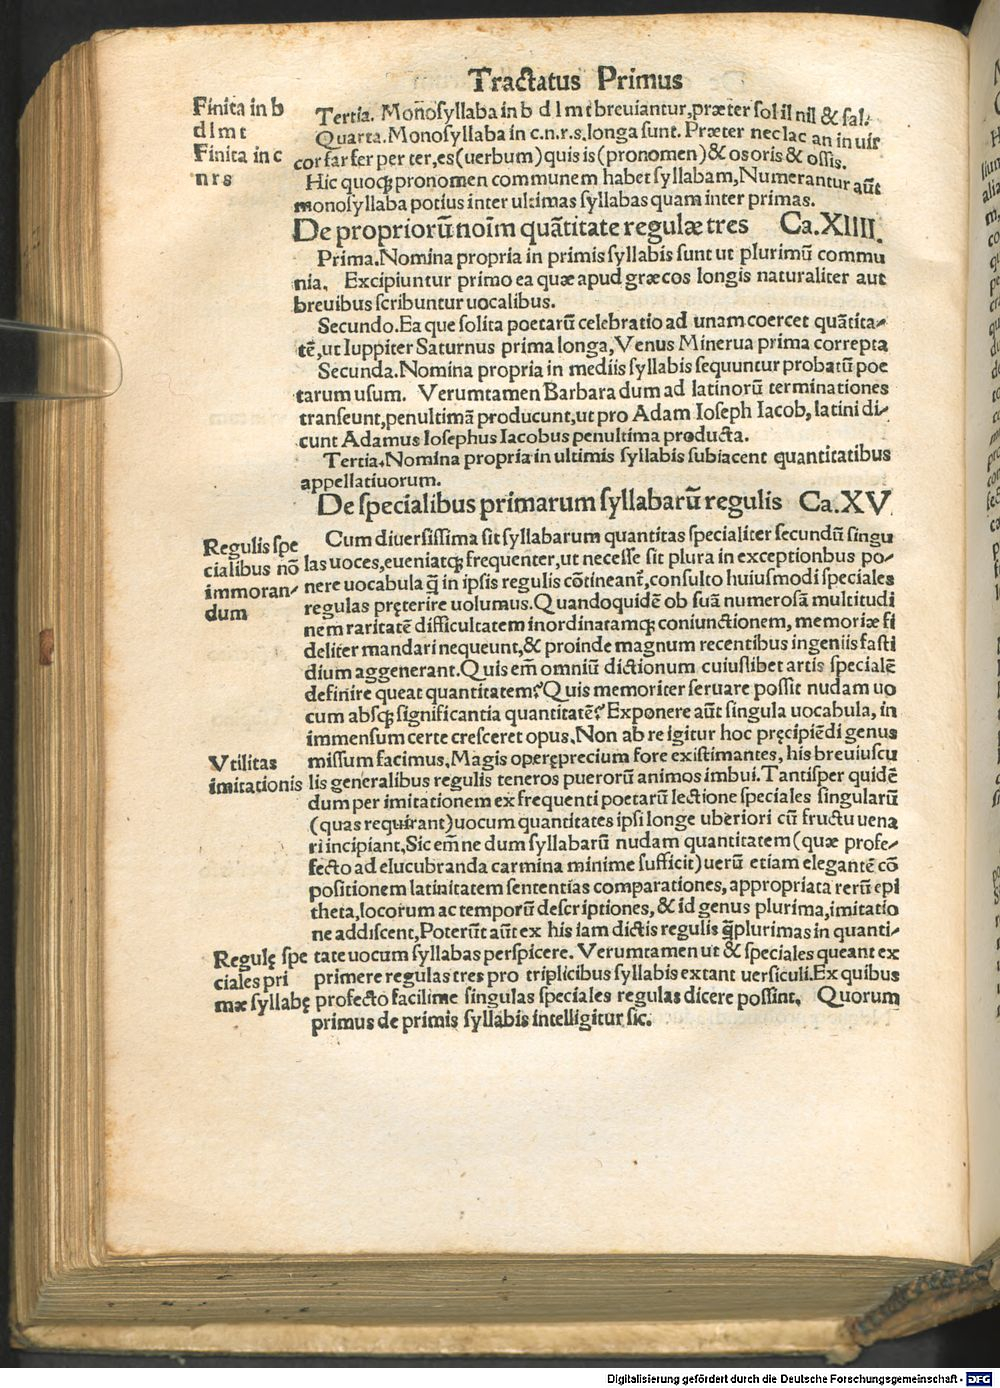 Tractatus Primus
Finita in b
d l m t
Finita in c
n r s
Tertia. Monosyllaba in b d l m t breuiantur, præter sol il nil & sal.
Quarta. Monosyllaba in c.n.r.s. longa sunt. Præter nec lac an in uir
cor far fer per ter, es (uerbum) quis is (pronomen) & os oris & ossis.
Hic quoqꝫ pronomen communem habet syllabam, Numerantur aūt
monosyllaba potius inter ultimas syllabas quam inter primas.
De propriorū noīm quātitate regulæ tres Ca.XIIII.
Prima. Nomina propria in primis syllabis sunt ut plurimū commu
nia. Excipiuntur primo ea quæ apud græcos longis naturaliter aut
breuibus scribuntur uocalibus.
Secundo. Ea que solita poetarū celebratio ad unam coercet quātita-
tē, ut Iuppiter Saturnus prima longa, Venus Minerua prima correpta
Secunda. Nomina propria in mediis syllabis sequuntur probatū poe
tarum usum. Verumtamen Barbara dum ad latinorū terminationes
transeunt, penultimā producunt, ut pro Adam Ioseph Iacob, latini di-
cunt Adamus Iosephus Iacobus penultima producta.
Tertia. Nomina propria in ultimis syllabis subiacent quantitatibus
appellatiuorum.
De specialibus primarum syllabarū regulis Ca.XV
Regulis spe
cialibus nō
immoran-
dum
Cum diuersissima sit syllabarum quantitas specialiter secundū singu
las uoces, eueniatqꝫ frequenter, ut necesse sit plura in exceptionbus po-
nere uocabula q̄ in ipsis regulis cōtineant̄, consulto huiusmodi speciales
regulas pręterire uolumus. Quandoquidē ob suā numerosā multitudi
nem raritatē difficultatem inordinatamqꝫ coniunctionem, memoriæ fi
deliter mandari nequeunt, & proinde magnum recentibus ingeniis fasti
dium aggenerant. Quis em̄ omniū dictionum cuiuslibet artis specialē
definire queat quantitatem? Quis memoriter seruare possit nudam uo
cum absqꝫ significantia quantitatē? Exponere aūt singula uocabula, in
immensum certe cresceret opus. Non ab re igitur hoc pręcipiēdi genus
missum facimus. Magis operęprecium fore existimantes, his breuiuscu
lis generalibus regulis teneros puerorū animos imbui. Tantisper quidē
dum per imitationem ex frequenti poetarū lectione speciales singularū
(quas requirant) uocum quantitates ipsi longe uberiori cū fructu uena
ri incipiant. Sic em̄ ne dum syllabarū nudam quantitatem (quæ profe-
secto ad elucubranda carmina minime sufficit) uerū etiam elegantē cō
positionem latinitatem sententias comparationes, appropriata rerū epi
theta, locorum ac temporū descriptiones, & id genus plurima, imitatio
ne addiscent, Poterūt aūt ex his iam dictis regulis q̄plurimas in quanti-
tate uocum syllabas perspicere. Verumtamen ut & speciales queant ex
primere regulas tres pro triplicibus syllabis extant uersiculi. Ex quibus
profecto facilime singulas speciales regulas dicere possint. Quorum
primus de primis syllabis intelligitur sic.
Vtilitas
imitationis
Regulę spe
ciales pri
mæ syllabę
Digitalisierung gefördert durch die Deutsche Forschungsgemeinschaft - DFG